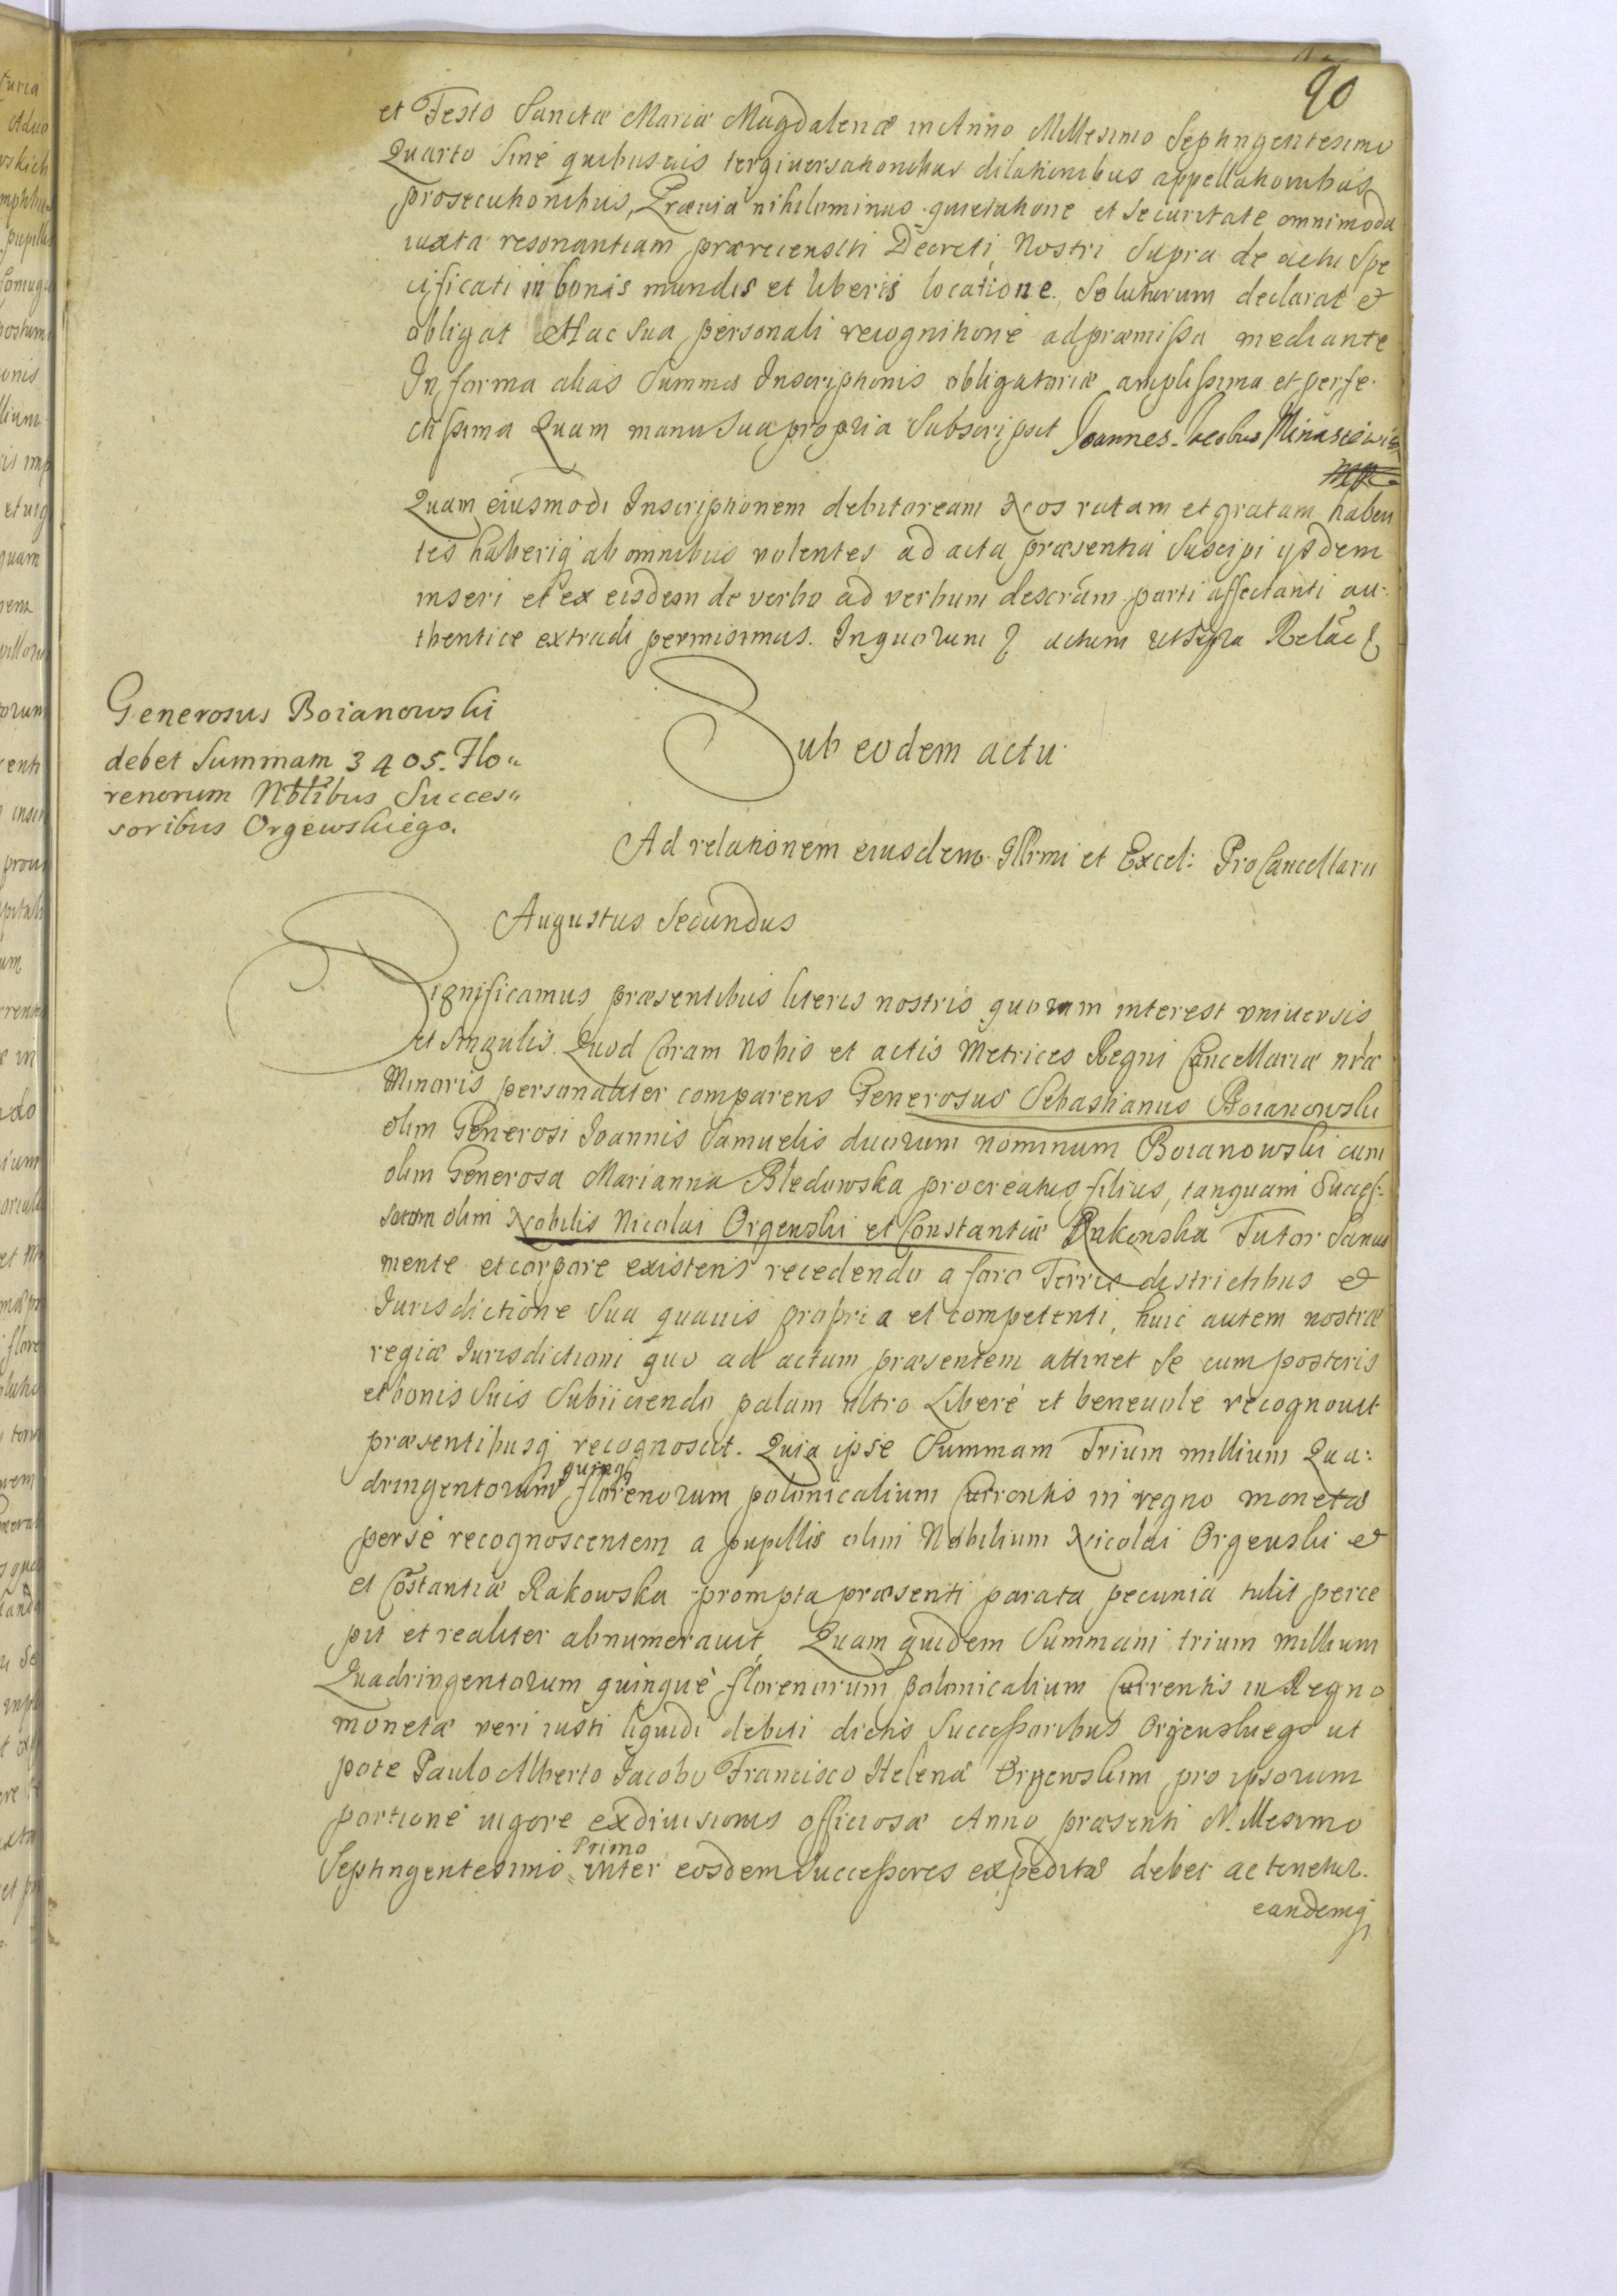 90
et Festo Sanctæ Mariæ Magdalenæ in Anno Millesimo Septingentesimo
Quarto Sinè quibusuis tergiuersationibus dilationibus appellationibus
prosecutionibus, Præuia nihilominus quietatione et securitate omnimoda
iuxta resonantiam prærecensiti Decreti Nostri Supra de actu Spe
cificati in bonis mundis et liberis locatione. Soluturum declarat et
obligat Hac sua personali recognitione ad præmissa mediante
In forma alias Summæ Inscriptionis obligatoriæ amplissima et perfe
ctissima Quam manu sua propria Subscripsit Joannes Jacobus Minasiewicz
mp
Quam eiusmodi Inscriptionem debitoream Nos ratam et gratam haben
tes haberiq ab omnibus volentes ad acta præsentia Suscipi ijsdem
inseri et ex eisdem de verbo ad verbum descrãm parti affectanti au-
thentice extradi permisimus. In quorum actum ut supra Relãe
Generosus Boianowski
debet Summam 3405. Flo„
renorum Nobtibus Succes„
soribus Orgewskiego.
Sub eodem actu
Ad relationem eiusdem Illrmi et Excel: ProCancellarii
Augustus Secundus
Significamus præsentibus literis nostris quorum interest vniuersis
et singulis. Quod Coram Nobis et actis Metrices Regni Cancellariæ nrã
Minoris personaliter comparens Generosus Sebastianus Boianowski
olim Generosi Joannis Samuelis duorum nominum Boianowski cum
olim Generosa Marianna Bledowska procreatus filius, tanquam Succes:
sorum olim Nobilis Nicolai Orgewski et Constantiæ Rakowska Tutor Sanus
mente et corpore existens recedendo a foro Terris districtibus et
Jurisdictione Sua quauis propria et competenti, huic autem nostræ
regiæ Jurisdictioni quo ad actum præsentem attinet Se cum posteris
et bonis Suis Subiiciendo palam ultro Liberè et beneuole recognouit
præsentibusq recognoscit. Quia ipse Summam Trium millium Qua:
dringentorum quinq florenorum polonicalium Currentis in regno monetæ
persè recognoscentem a pupillis olim Nobilium Nicolai Orgewski et
et Cõstantiæ Rakowska prompta præsenti parata pecunia tulit perce
pit et realiter abnumerauit, Quam quidem Summam trium millium
Quadringentorum quinquè florenorum polonicalium Currentis in Regno
monetæ veri iusti liquidi debiti dictis Successoribus Orgewskiego ut
pote Paulo Alberto Jacobo Francisco Helenæ Orgewskim pro ipsorum
portione vigore exdiuisionis officiosæ Anno præsenti Millesimo
Septingentesimo Primo inter eosdem Successores expeditæ debet ac tenetur.
eandemq